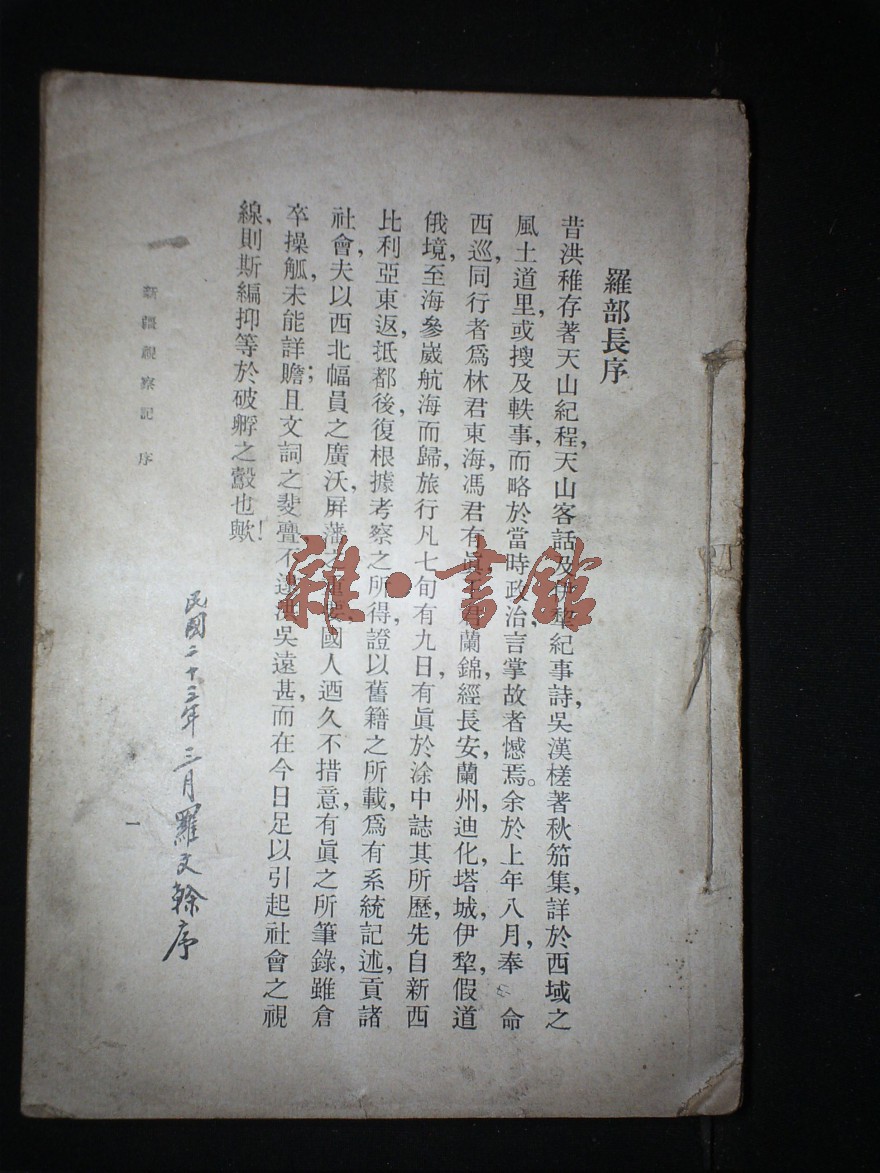 羅部長序
昔洪稚存著天山紀程，天山客話及伊犂紀事詩，吳漢槎著秋笳集，詳於西域之
風土道里，或搜及軼事，而略於當時政治，言掌故者憾焉。余於上年八月，奉 命
西巡，同行者爲林君東海，馮君有眞，蘭錦，經長安，蘭州，迪化，塔城，伊犂，假道
俄境，至海參崴航海而歸，旅行凡七旬有九日，有眞於涂中誌其所歷，先自新西
比利亞東返，抵都後，復根據考察之所得，證以舊籍之所載，爲有系統記述，貢諸
社會，夫以西北幅員之廣沃，屏藩之重要，國人迺久不措意，有眞之所筆錄，雖倉
卒操觚，未能詳贍；且文詞之斐亹不逮洪吳遠甚，而在今日足以引起社會之視
線，則斯編抑等於破孵之鷇也歟！
民國二十三年三月羅文榦序
新疆視察記 序
一
雜·書館